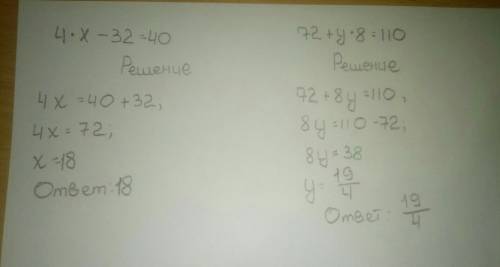 4·x-32=40
Решение
4x=40+32;
4x=72;
x=18
Ответ:18
72+y·8=110
Решение
72+8y=110;
8y=110-72;
8y=38
y=19/4
Ответ: 19/4